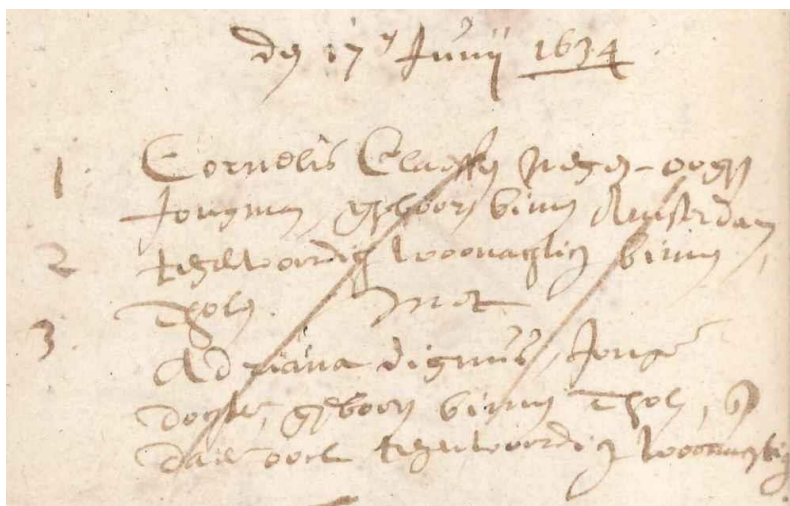 den 17en Junij 1634
1 Cornelis Claessen negen-oogen
Jongman, geboren binnen Amsterdam
2 tegenwoordig woonachtich binnen
Tholen. Met
3 Adriana dignus, Jonge
dochter, geboren binnen Tholen,
daer oock tegenwoordich woonachtig